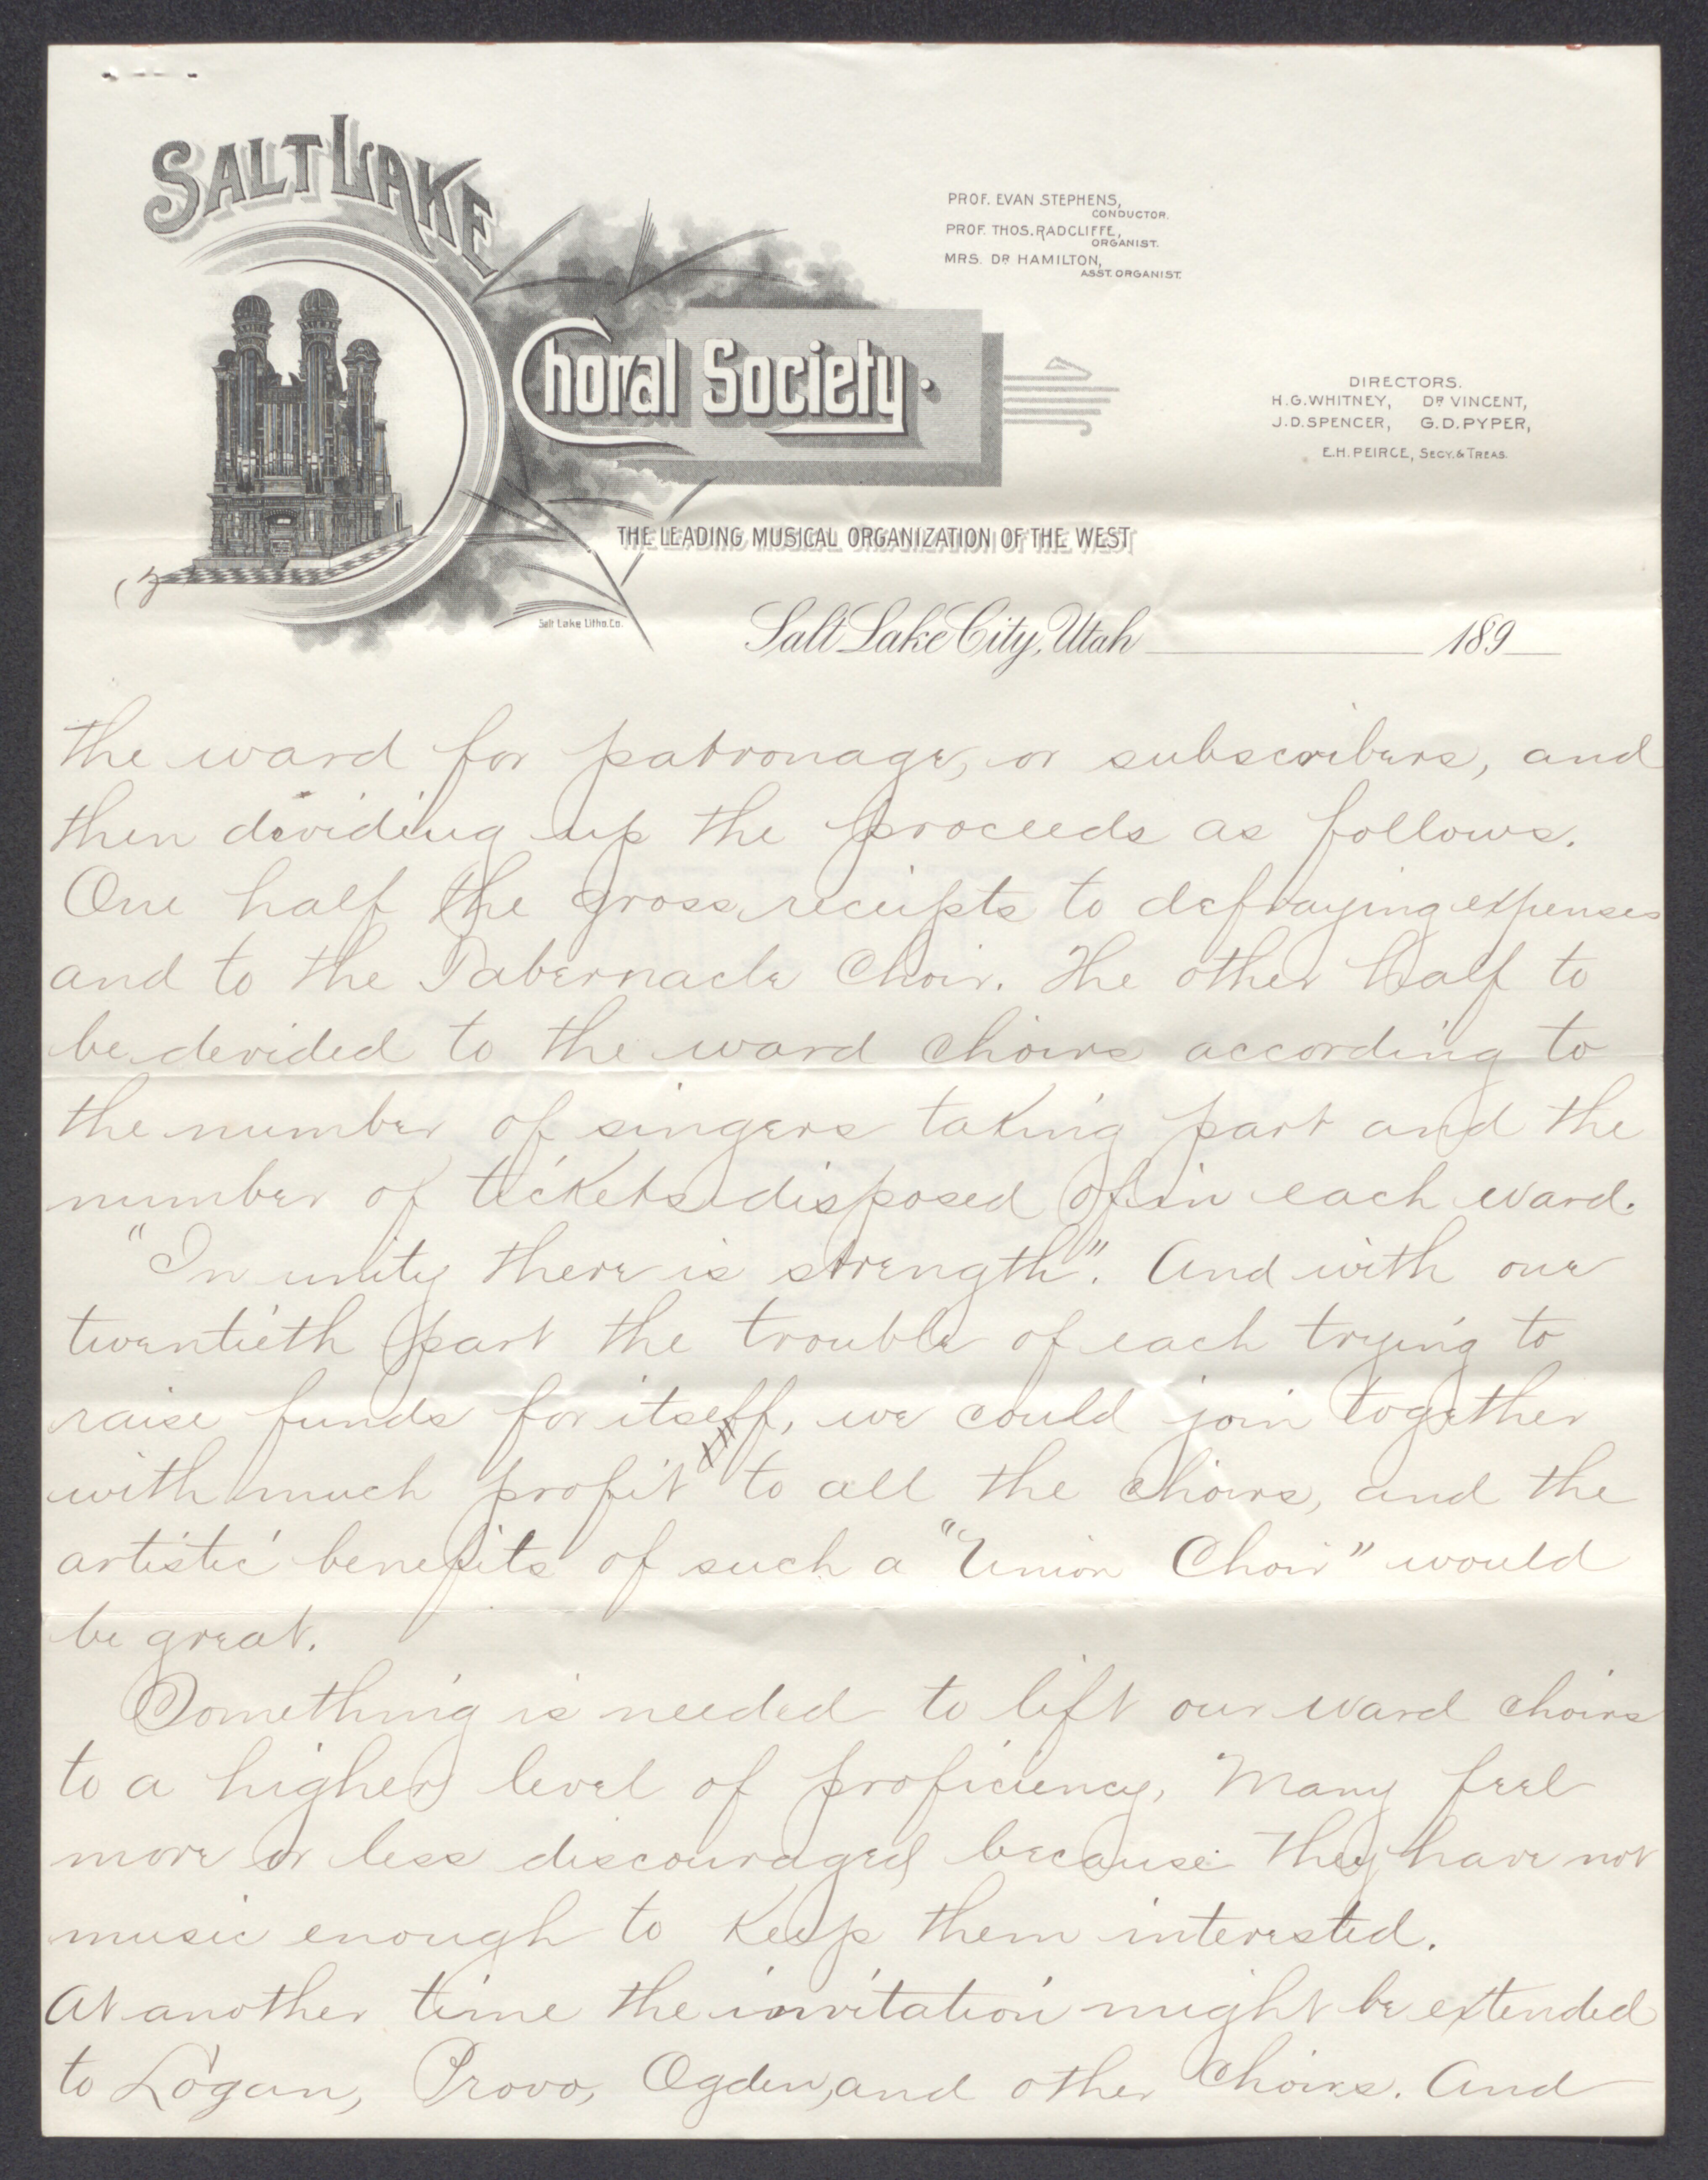 SALT LAKE
Choral Society.
PROF. EVAN STEPHENS,
CONDUCTOR.
PROF. THOS. RADCLIFFE,
ORGANIST.
MRS. DR. HAMILTON,
ASST. ORGANIST.
DIRECTORS.
H.G. WHITNEY, DR. VINCENT,
J.D. SPENCER, G.D. PYPER,
E.H. PEIRCE, SECY. & TREAS.
THE LEADING MUSICAL ORGANIZATION OF THE WEST
Salt Lake Litho. Co.
Salt Lake City, Utah 189
the ward for patronage, or subscribers, and
then dividing up the proceeds as follows.
One half the gross receipts to defraying expenses
and to the Tabernacle Choir. The other half to
be devided to the ward choirs according to
the number of singers taking part and the
number of tickets disposed of in each ward.
"In unity there is strength". And with one
twentieth part the trouble of each trying to
raise funds for itself, we could join together
with much profit to all the choirs, and the
artistic benefits of such a "Union Choir" would
be great.
Something is needed to lift our ward choirs
to a higher level of proficiency, Many feel
more or less discouraged because they have not
music enough to keep them interested.
At another time the invitation might be extended
to Logan, Provo, Ogden, and other Choirs. And